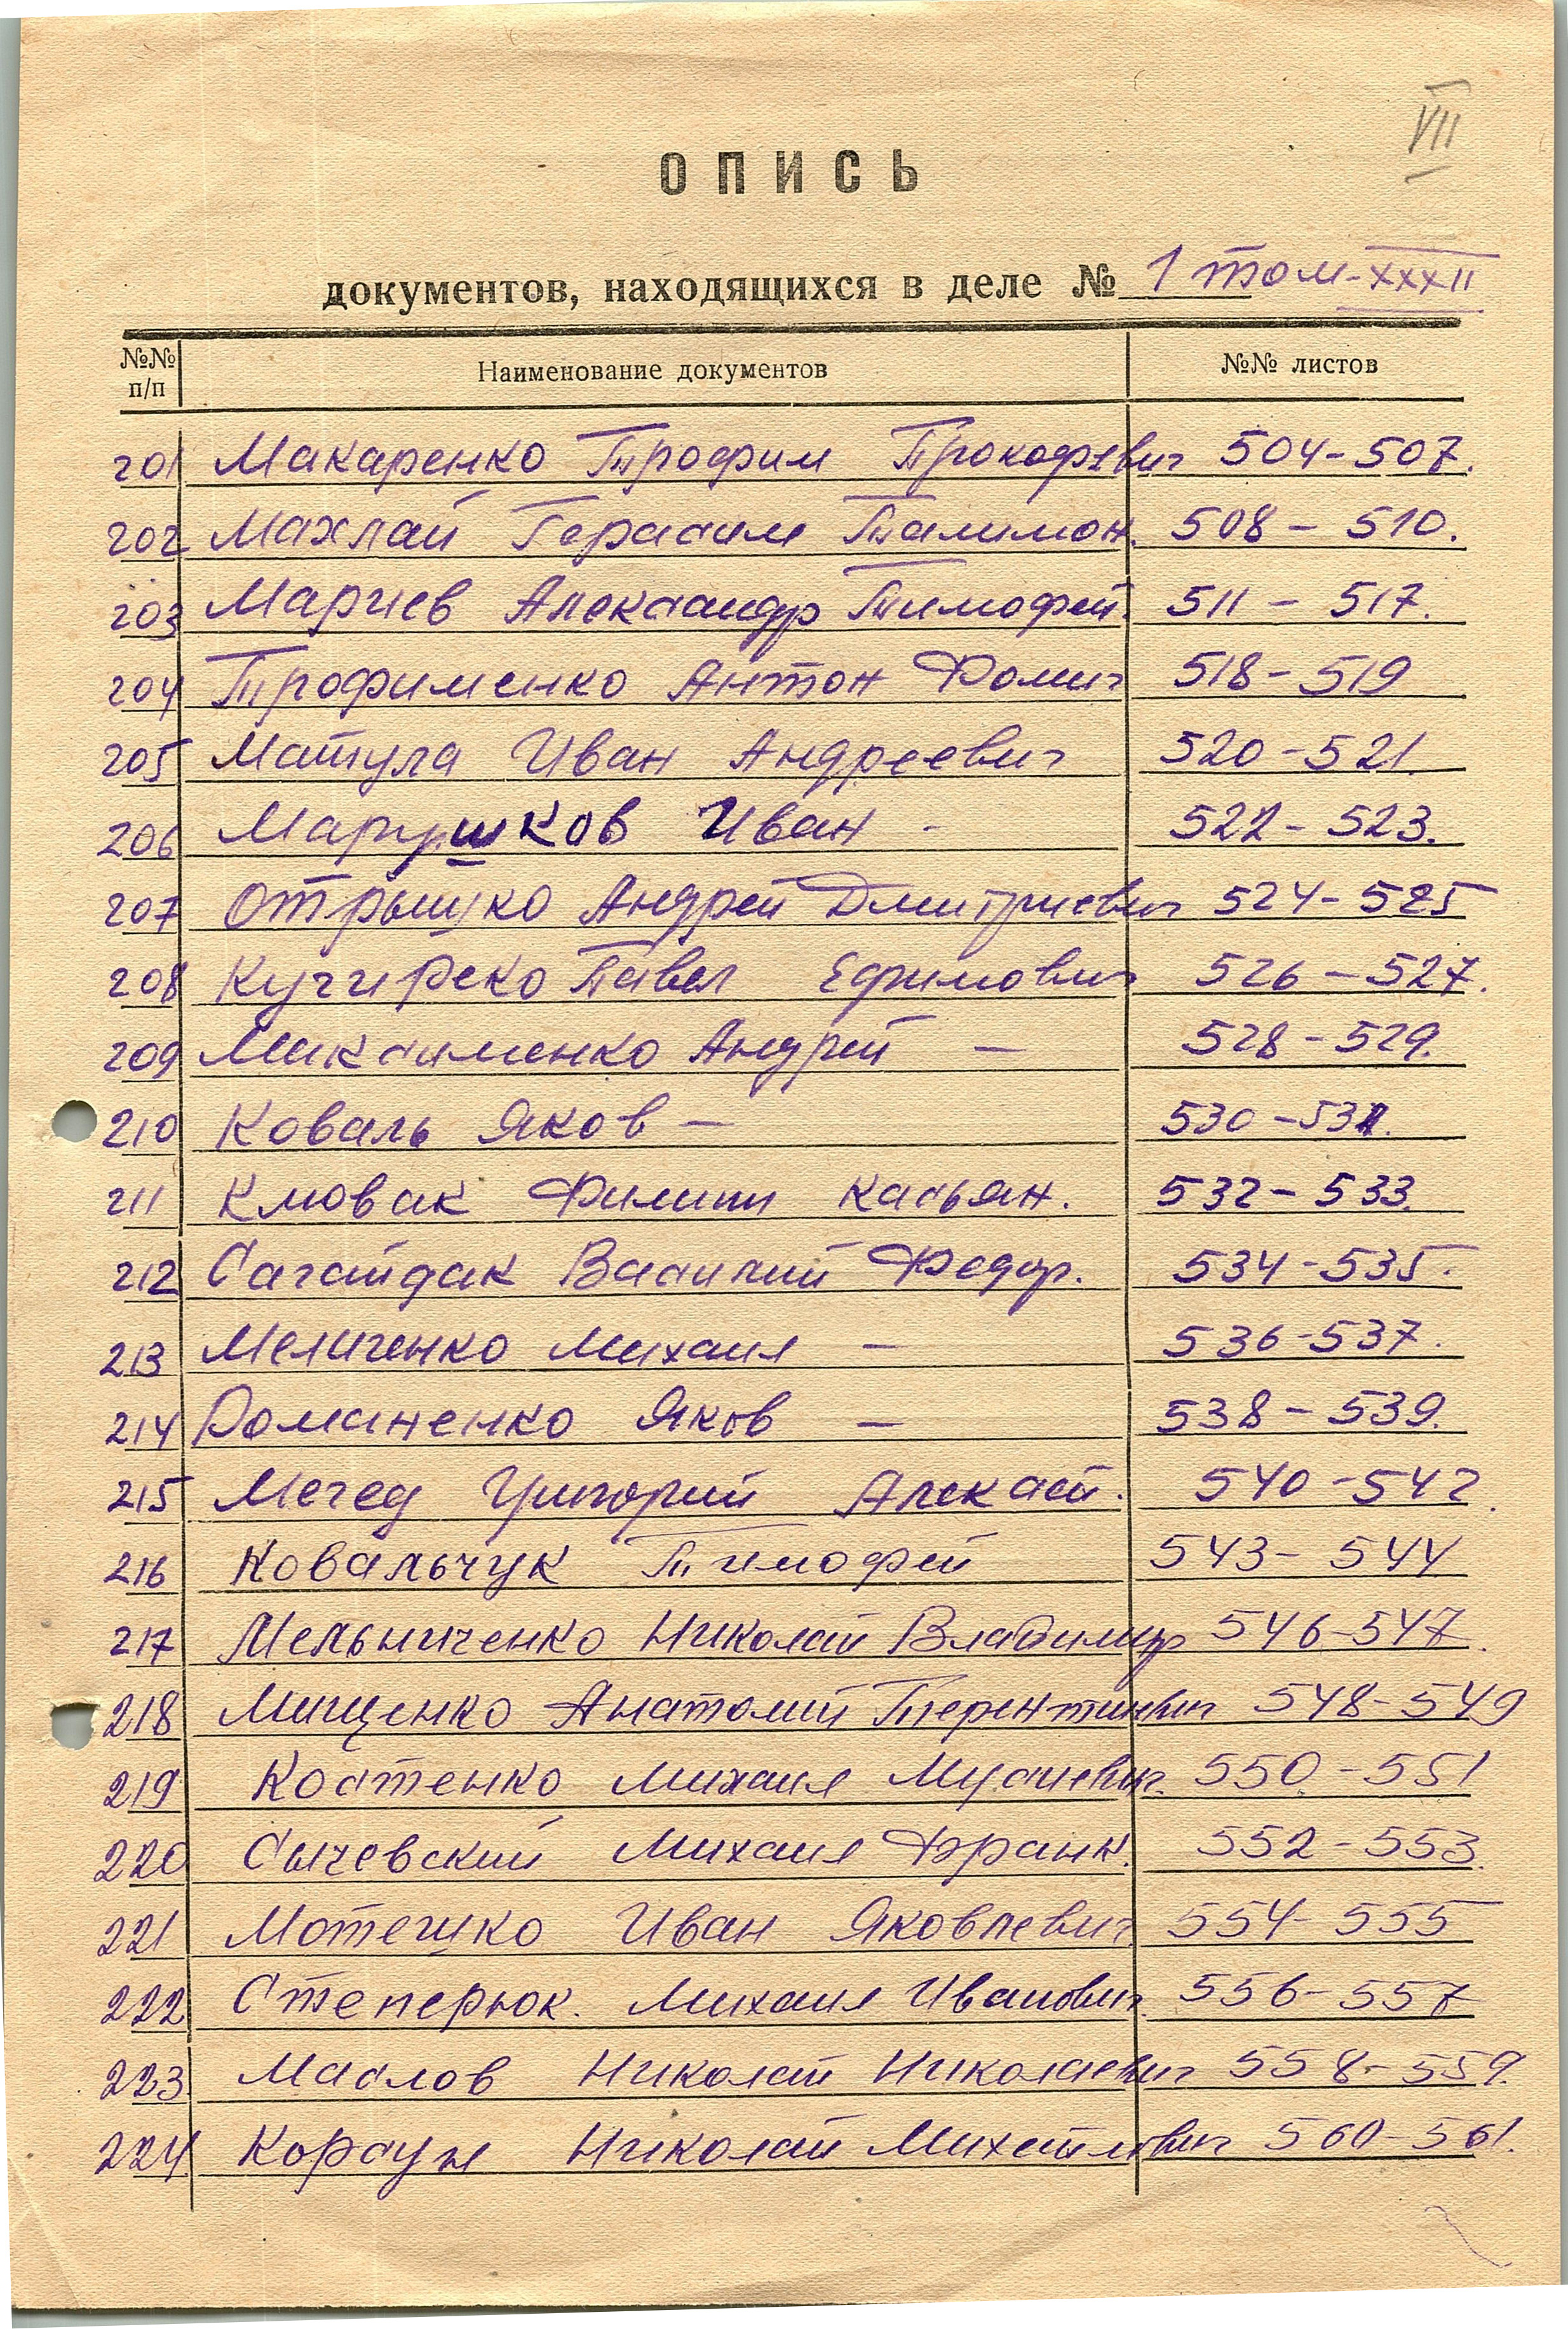 VII
ОПИСЬ
документов, находящихся в деле № 1 том-XXXII
№№ п/п Наименование документов №№ листов
201 Макаренко Трофим Прокофьевич 504-507.
202 Махлай Герасим Талимон. 508-510.
203 Марчев Александр Тимофей. 511-517.
204 Трофименко Антон Фомич 518-519
205 Матула Иван Андреевич 520-521.
206 Марушков Иван - 522-523.
207 Отрышко Андрей Дмитриевич 524-525
208 Павел Ефимович 526-527.
209 Максименко Андрей - 528-529.
210 Коваль Яков - 530-531.
211 Клювак Филипп Касьян. 532-533.
212 Сагайдак Василий Федор. 534-535.
213 Меличенко Михаил - 536-537.
214 Романенко Яков - 538-539.
215 Мегед Григорий Алексей. 540-542.
216 Ковальчук Тимофей 543-544
217 Мельниченко Николай Владимир 546-547.
218 Мищенко Анатолий Терентиевич 548-549
219 Костенко Михаил Мусиевич. 550-551
220 Сычевский Михаил Франк. 552-553.
221 Иван Яковлевич 554-555
222 Степерюк. Михаил Иванович. 556-557
223 Маслов Николай Николаевич 558-559.
224 Корсун Николай Михайлович 560-561.